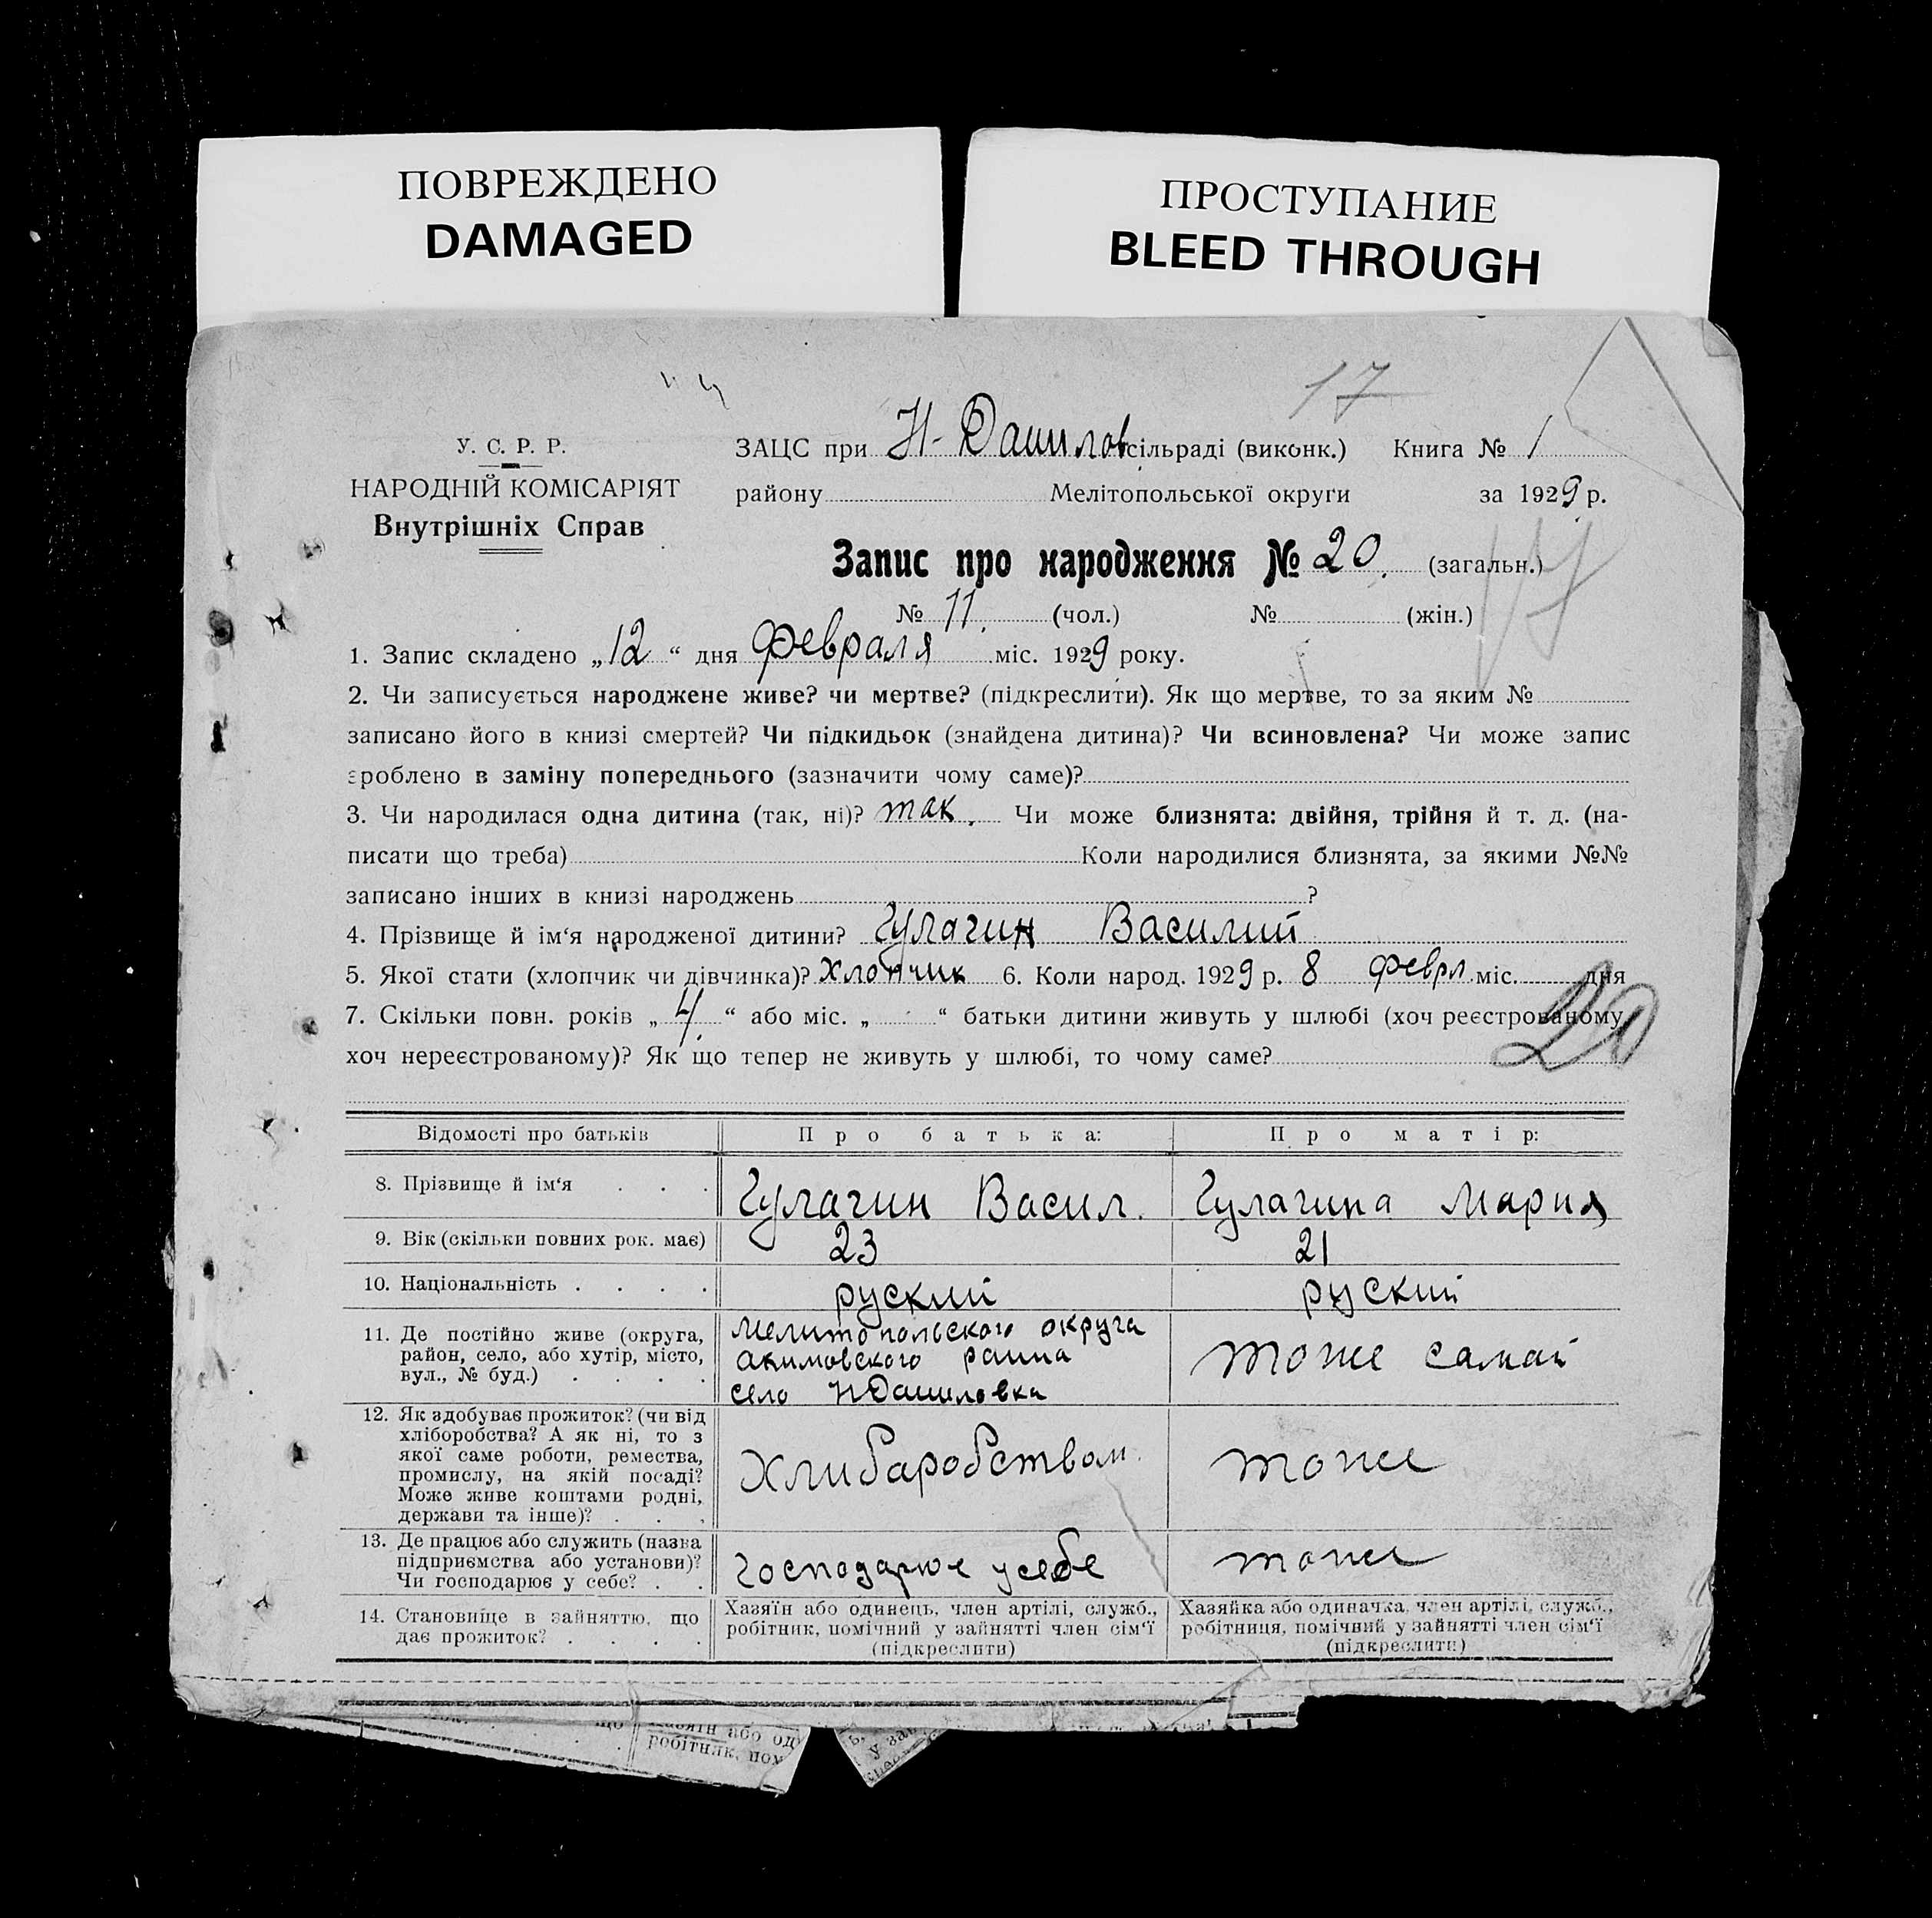 ПОВРЕЖДЕНО
DAMAGED
ПРОСТУПАНИЕ
BLEED THROUGH
17
У. С. Р. Р.
НАРОДНІЙ КОМІСАРІЯТ
Внутрішніх Справ
ЗАЦС при Н-Данилов сільраді (виконк.) Книга № 1
району Мелітопольської округи за 1929 р.
Запис про народження № 20. (загальн.)
17
№ 11. (чол.) № (жін.)
1. Запис складено „12“ дня Февраля міс. 1929 року.
2. Чи записується народжене живе? чи мертве? (підкреслити). Як що мертве, то за яким №
записано його в книзі смертей? Чи підкидьок (знайдена дитина)? Чи всиновлена? Чи може запис
зроблено в заміну попереднього (зазначити чому саме)?
3. Чи народилася одна дитина (так, ні)? так. Чи може близнята: двійня, трійня й т. д. (на-
писати що треба) Коли народилися близнята, за якими №№
записано інших в книзі народжень ?
4. Прізвище й ім‘я народженої дитини? Гулагин Василий
5. Якої стати (хлопчик чи дівчинка)? Хлопчик 6. Коли народ. 1929 р. 8 Феврл міс. дня
7. Скільки повн. років „4“ або міс. „ “ батьки дитини живуть у шлюбі (хоч реєстрованому,
20
хоч нереєстрованому)? Як що тепер не живуть у шлюбі, то чому саме?
Відомості про батьків Про батька: Про матір:
8. Прізвище й ім‘я . . . Гулагин Васил. Гулагина Мария
9. Вік (скільки повних рок. має) 23 21
10. Національність . . . . руский руский
11. Де постійно живе (округа,
район, село, або хутір, місто,
вул., № буд.) . . . .
Мелитопольского округа
Акимовского раина
село НДаниловка
тоже самаи
12. Як здобуває прожиток? (чи від
хліборобства? А як ні, то з
якої саме роботи, ремества,
промислу, на якій посаді?
Може живе коштами родні,
держави та інше)? . . .
Хлибаробствам.
тоже
13. Де працює або служить (назва
підприємства або установи)?
Чи господарює у себе? . .
господарюе усебе
тоже
14. Становище в зайняттю, що
дає прожиток? . . . .
Хазяїн або одинець, член артілі, служб.,
робітник, помічний у зайнятті член сім‘ї
(підкреслити)
Хазяйка або одиначка, член артілі, служб.,
робітниця, помічний у зайнятті член сім‘ї
(підкреслити)
Хазяїн або од
робітник, пом
у зан